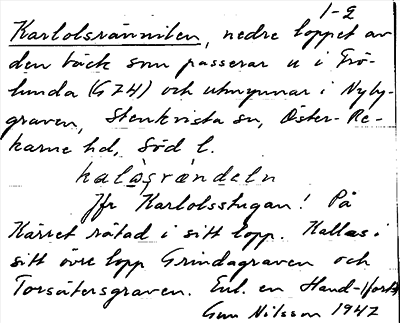 1-2
Karlolsrännilen, nedre loppet av
den bäck som passerar u i Frö-
lunda (GZH) och utmynnar i Nyby-
graven, Stenkvista sn, Öster-Re-
karne hd, Söd l.
kalòsrändeln
Jfr Karlolsstugan! På
Kärret rätad i sitt lopp. Kallas i
sitt övre lopp Grindagraven och
Torsätersgraven. Enl. en Hand-
Gun Nilsson 1942